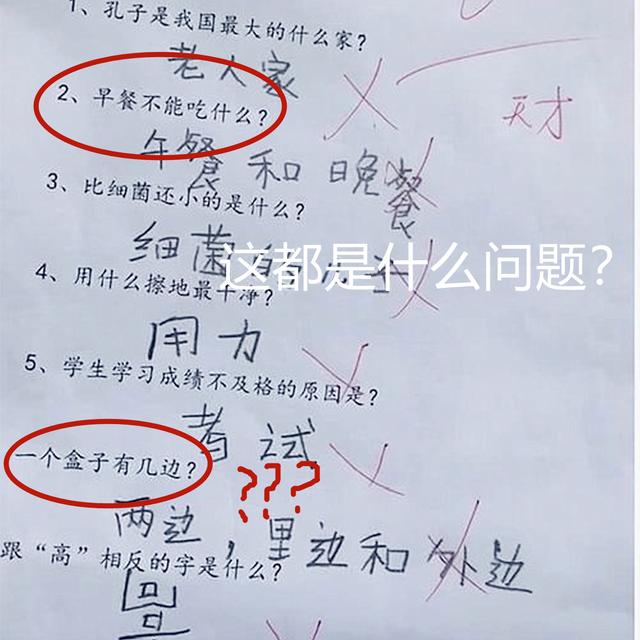 1、孔子是我国最大的什么家？
老人家
2、早餐不能吃什么？
天才
午餐和晚餐
3、比细菌还小的是什么？
细菌
这都是什么问题？
4、用什么擦地最干净？
用力
5、学生学习成绩不及格的原因是？
考试
一个盒子有几边？
???
两边，里边和外边
跟“高”相反的字是什么？